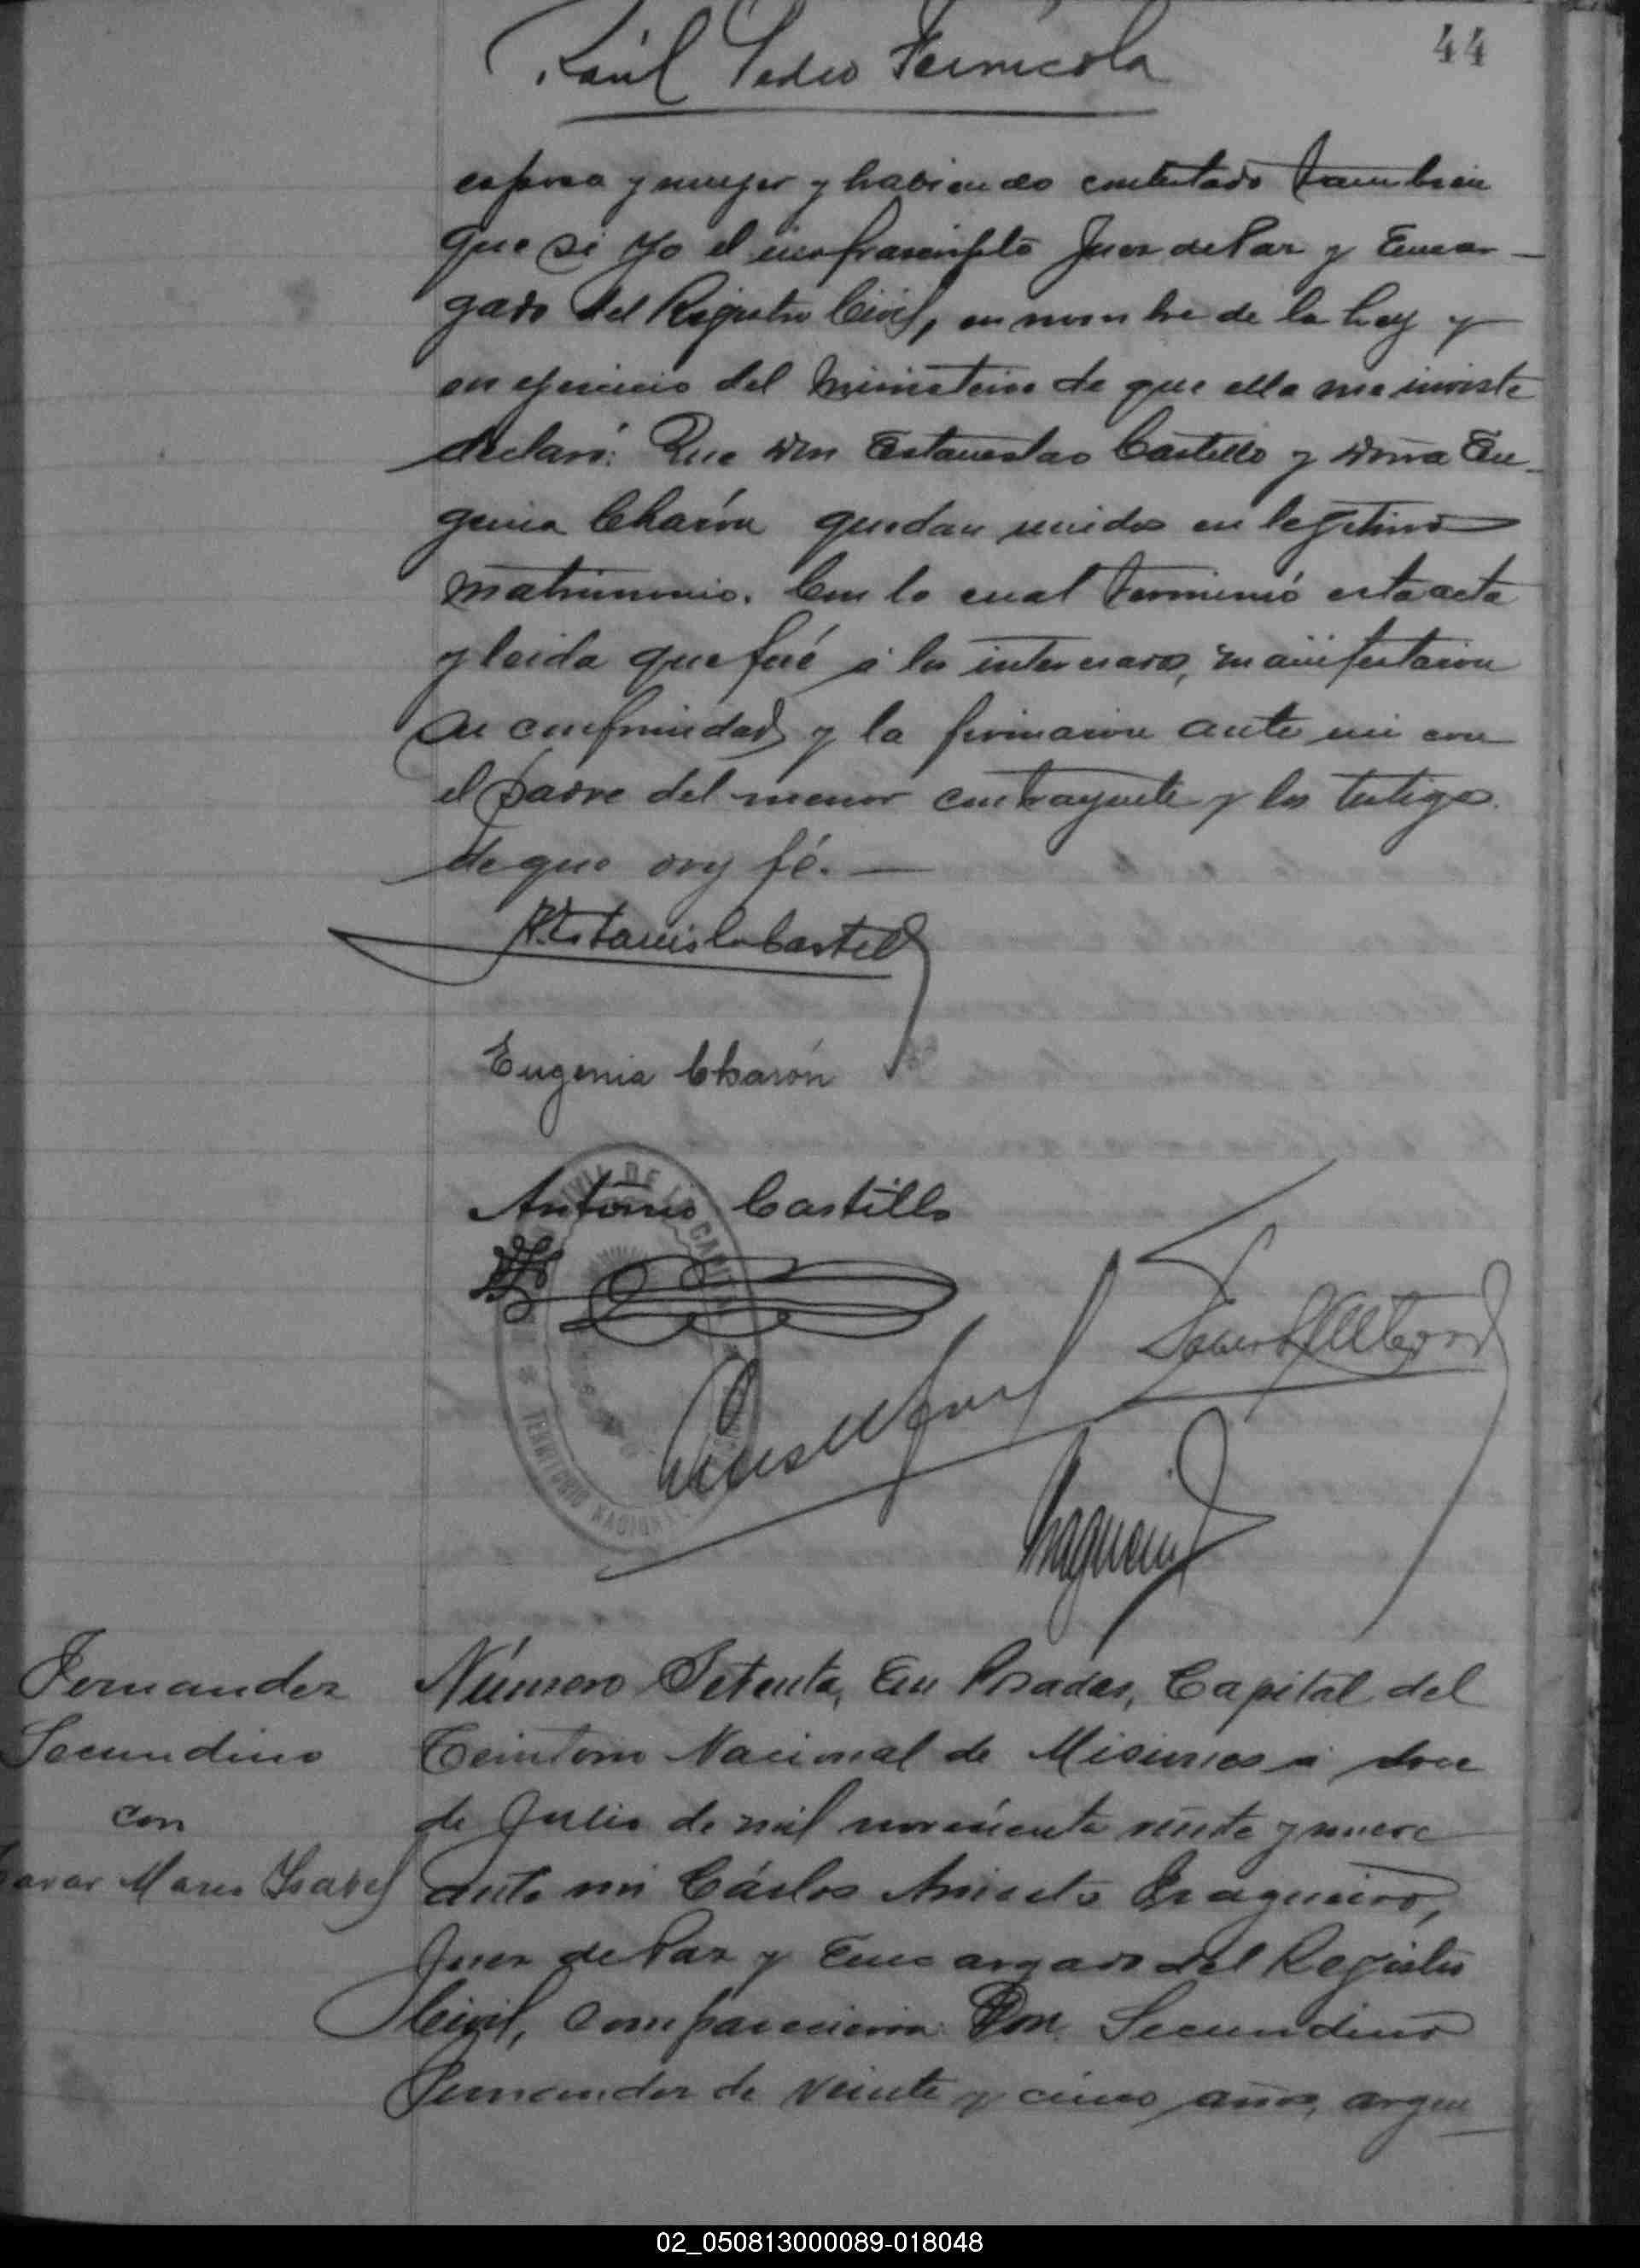 44
Raúl Pedro Fernicola
esposa y mujer y habiendo contestado tambien
que si Yo el infrascripto Juez de Paz y Encar-
gado del Registro Civil, en nombre de la Ley y
en ejercicio del Ministerio de que ella me inviste
declaro: Que Don Estanislao Castillo y Doña Eu-
genia Charón quedan unidos en legitimo
matrimonio. Con lo cual terminó esta acta
y leida que fué á los interesados, manifestaron
su conformidad y la firmaron ante mi con
el padre del menor contrayente y los testigos
de que doy fé. —
Estanislao Castillo
Eugenia Charón
Antonio Castillo
CIVIL DE LA CAPITAL
TERRITORIO NACIONAL
Fernandez
Secundino
con
Maria Ysabel
Número Setenta, En Posadas, Capital del
Territorio Nacional de Misiones á doce
de Julio de mil novecientos veinte y nueve
ante mi Cárlos Aniceto Fragueiro,
Juez de Paz y Encargado del Registro
Civil, comparecieron: Don Secundino
Fernandez de veinte y cinco años, argen
02_050813000089-018048